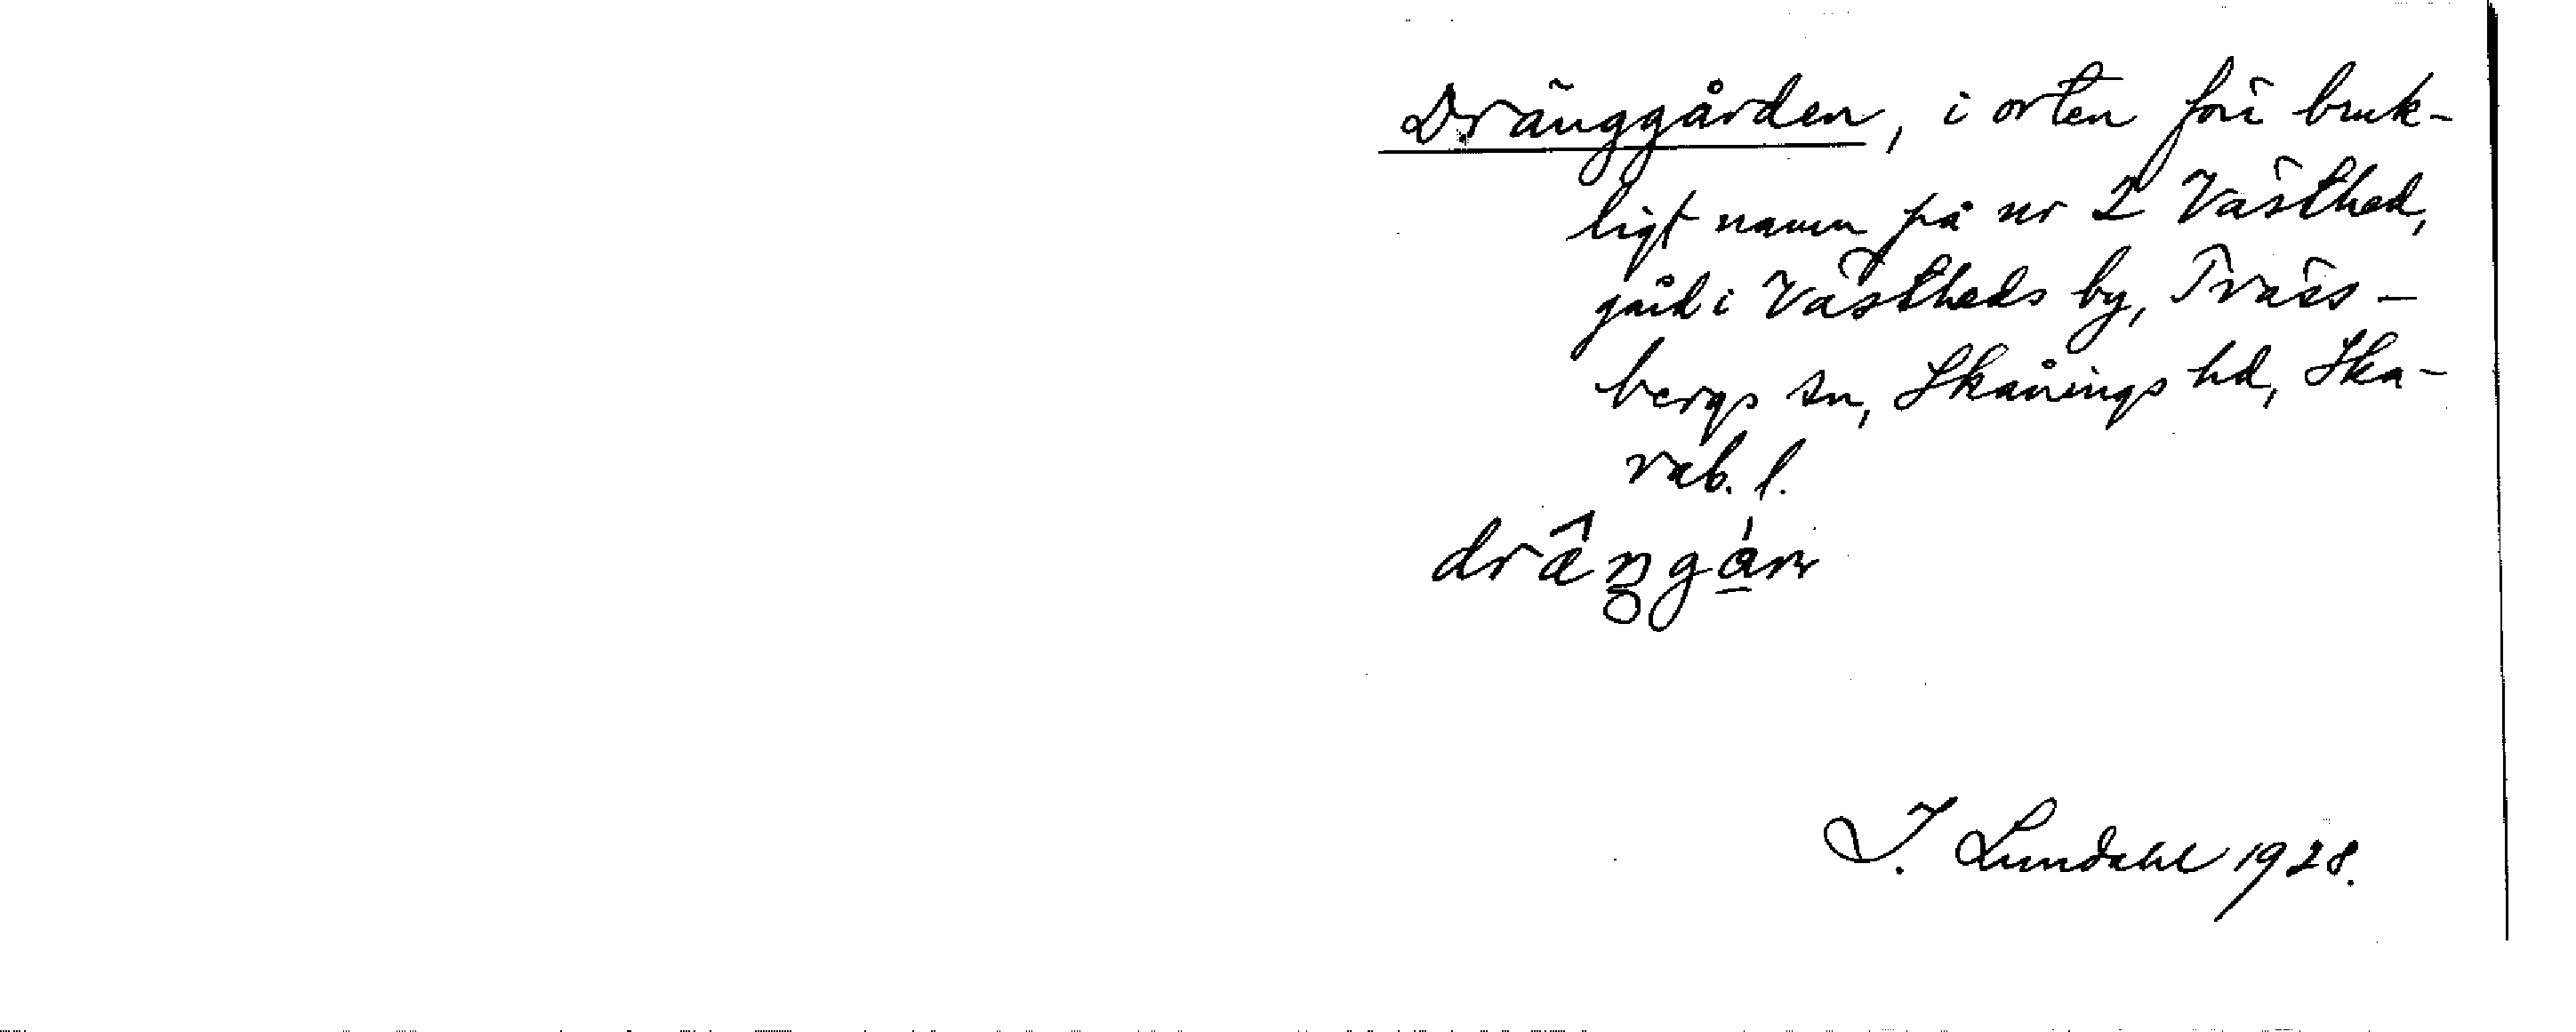 Dränggården, i orten förr bruk-
ligt namn på nr 2 Västhed,
gård i Västheds by, Träss-
bergs sn, Skånings hd, Ska-
rab. l.
I. Lundahl 1928.